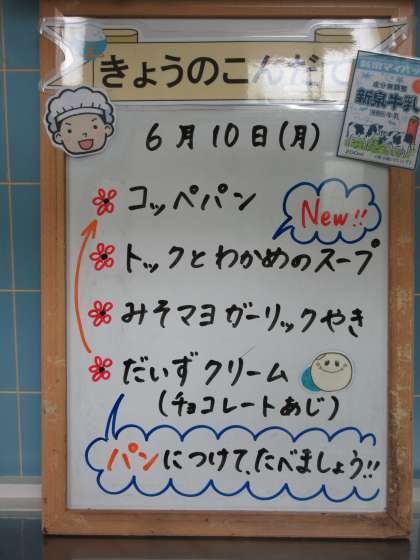 きょうのこんだて
新泉牛乳
成分無調整
6月10日(月)
コッペパン
New!!
トックとわかめのスープ
みそマヨガーリックやき
だいずクリーム
(チョコレートあじ)
パンにつけて、たべましょう!!